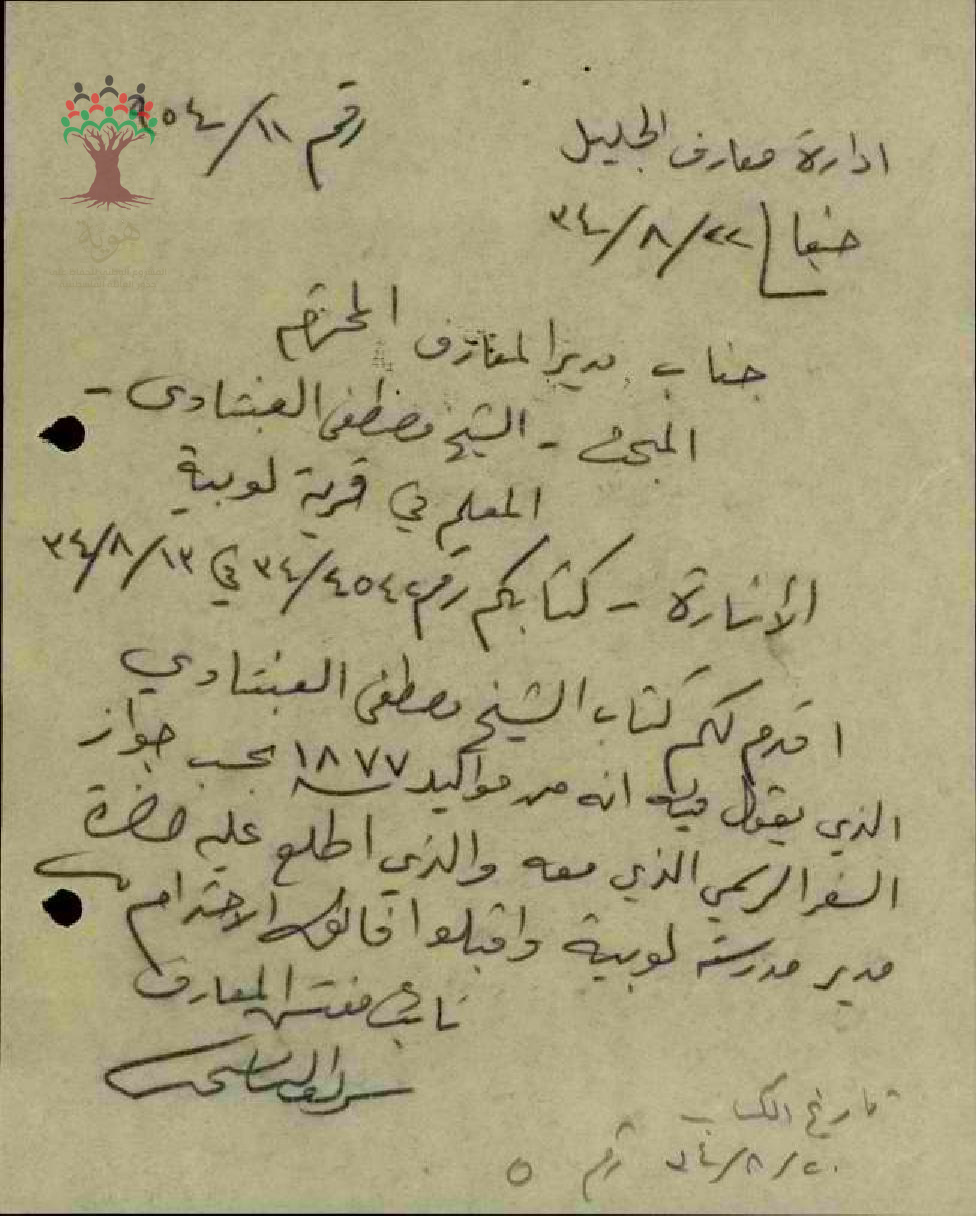 ادارة معارف الجليل
رقم ١١/٩٥٤
حيفا ٢٢/٨/٣٤
جناب مدير المعارف المحترم
المبحث - الشيخ مصطفى العبشاوي -
المعلم في قرية لوبية
الاشارة - كتابكم رقم ٣٤/٤٥٤ في ١٣/٨/٣٤
اقدم لكم كتاب الشيخ مصطفى العبشاوي
الذي يقول فيه انه من مواليد سنة ١٨٧٧ بحسب جواز
السفر الرسمي الذي معه والذي اطلع عليه حضرة
مدير مدرسة لوبية واقبلوا فائق الاحترام
نائب مفتش المعارف
تاريخ الكتاب
٢٠/٨/٣٤ رقم ٥